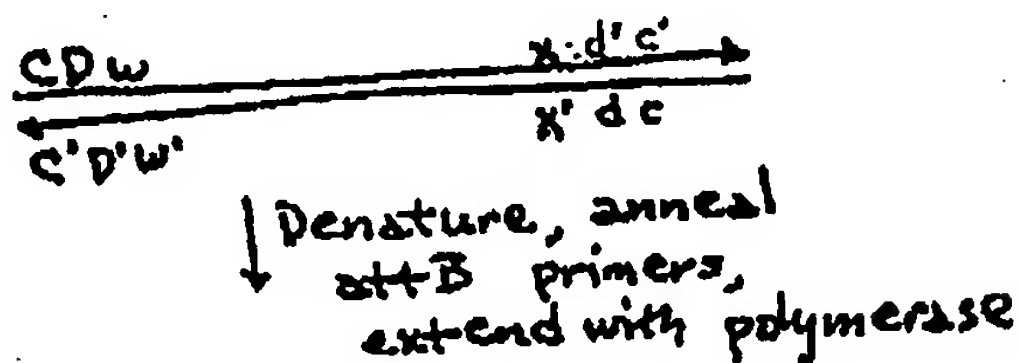 CDw x:d'c'
C'D'w' x'dc
Denature, anneal
attB primers,
extend with polymerase